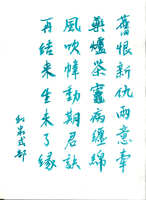 舊恨新仇兩意牽
藥爐茶竈病纏綿
風吹幃動期君訣
再結來生未了緣
和泉式部